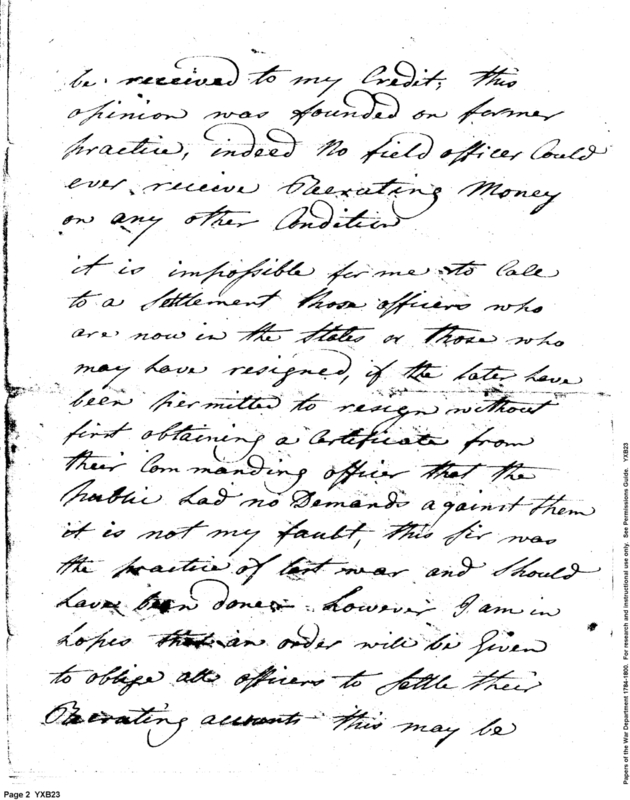 be received to my Credit, this
opinion was founded on former
practice, indeed No field officer Could
ever receive Recruting Money
on any other Condition
it is impossible for me to Call
to a Settlement those officers who
are now in the States or those who
may have resigned, if the later have
been permitted to resign without
first obtaining a Certificate from
their Commanding officer that the
public had no Demands against them
it is not my fault, this sir was
the practice of last war and Should
have been done - however I am in
hopes that an order will be Given
to oblige all officers to Settle their
Recruting accounts this may be
Page 2 YXB23
Papers of the War Department 1784-1800. For research and instructional use only. See Permissions Guide. YXB23